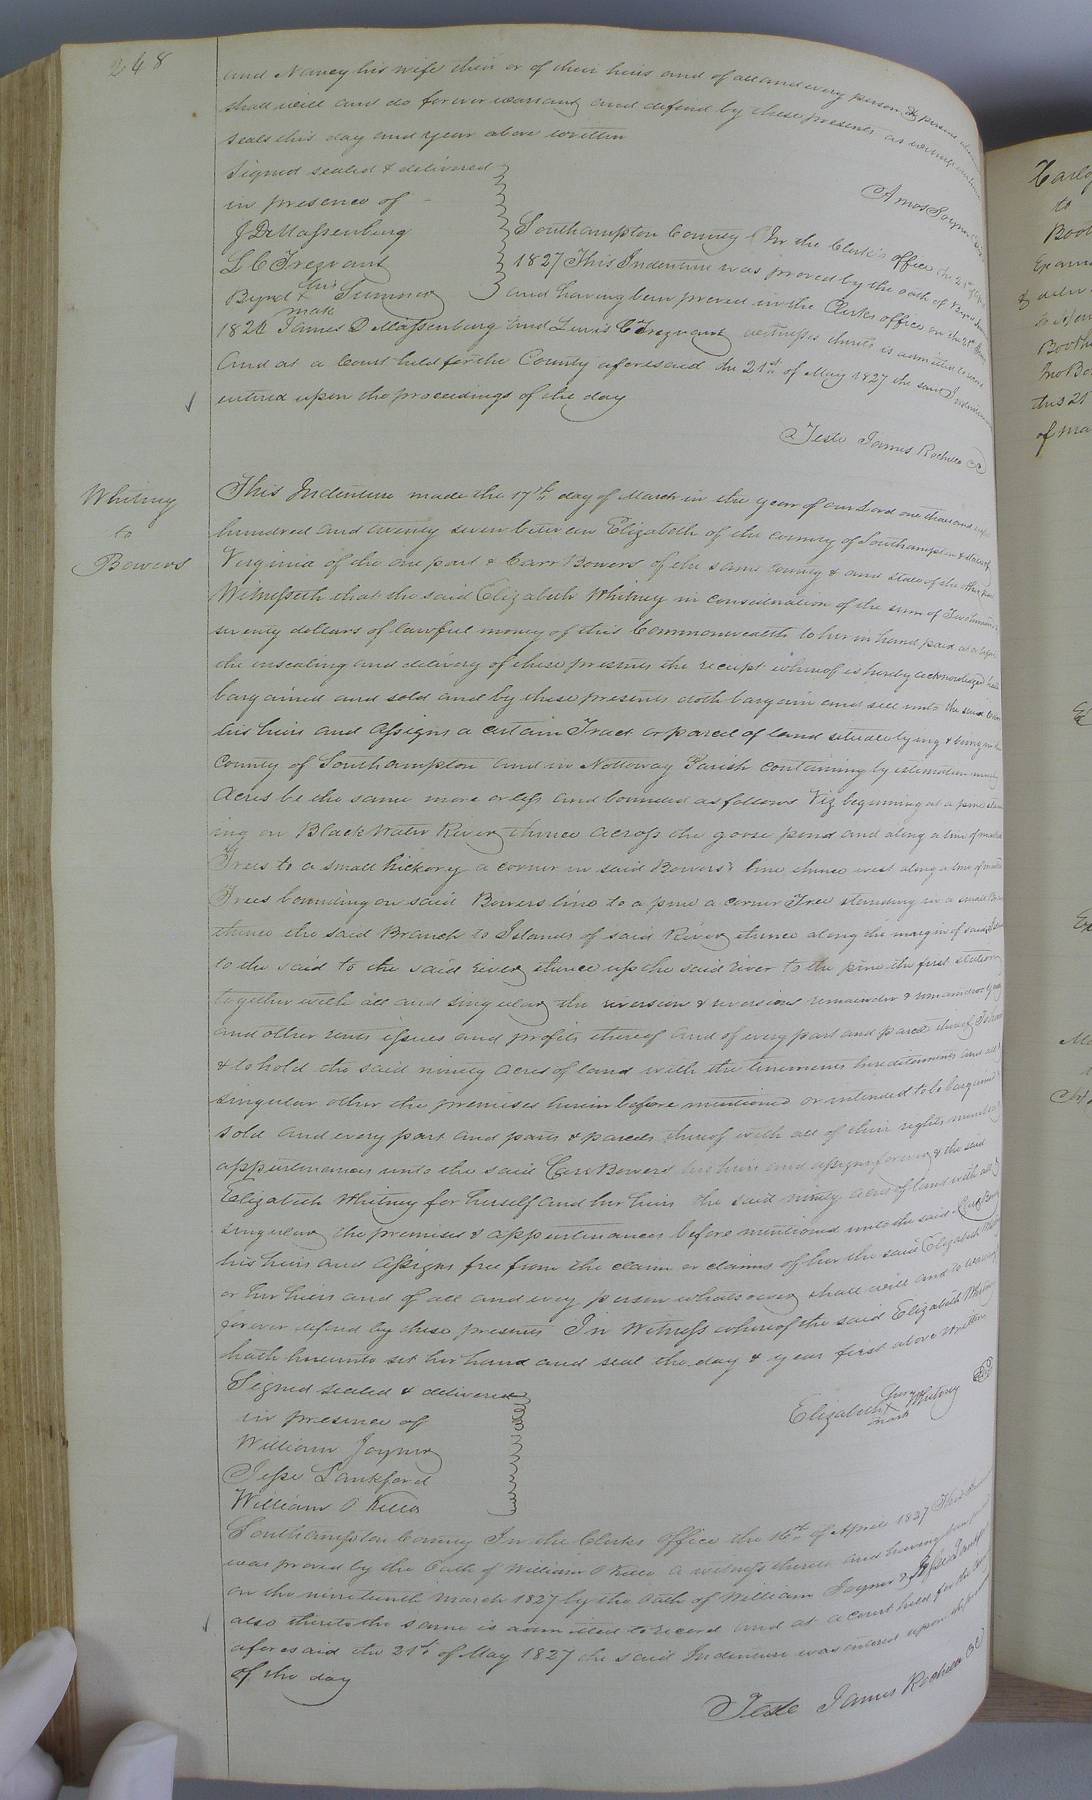 248
and Nancy his wife their or of their heirs and of all and every person & persons
shall will and do forever warrant and defend by these presents as
seals this day and year above written
Signed sealed & delivered
in presence of
Amos Joyner
J D Massenburg
L C Trezvant
his
Byrd + Turner
mark
Southampton County In the Clerk's office the 21st of
1827 This Indenture was proved by the oath of Byrd
and having been proved in the Clerks office on the
1826 James D Massenburg and Lewis C Trezvant witnesses thereto is admitted to
And at a Court held for the County aforesaid the 21st of May 1827 the said Indenture
entered upon the proceedings of the day
Teste James Rochelle CC
Whitney
to
Bowers
This Indenture made the 17th day of March in the year of our Lord one thousand eight
hundred and twenty seven between Elizabeth of the county of Southampton & state of
Virginia of the one part & Carr Bowers of the same County & and state of the other part
Witnesseth that the said Elizabeth Whitney in consideration of the sum of Two hundred &
seventy dollars of lawful money of this Commonwealth to her in hand paid at or before
the ensealing and delivery of these presents the receipt whereof is hereby acknowledged hath
bargained and sold and by these presents doth bargain and sell unto the said
his heirs and assigns a certain Tract or parcel of land situate lying & being in the
County of Southampton and in Nottoway Parish containing by estimation ninety
Acres be the same more or less and bounded as follows Viz beginning at a pine
ing on Black Water River thence across the goose pond and along a line of marked
Trees to a small hickory a corner in said Bowers' line thence west along a line of marked
Trees bounding on said Bowers line to a pine a corner Tree standing in a small
thence the said Branch to Islands of said River thence along the margin of said
to the said to the said river thence up the said river to the pine the first station
together with all and singular the reversion & reversions remainder & remainders
and other rents issues and profits thereof and of every part and parcel thereof To have
& to hold the said ninety acres of land with the tenements hereditaments and all &
singular other the premises herein before mentioned or intended to be bargained &
sold and every part and parts & parcels thereof with all of their rights members
appurtenances unto the said Carr Bowers his heirs and assigns forever & the said
Elizabeth Whitney for herself and her heirs the said ninety acres of land with all &
singular the premises & appurtenances before mentioned unto the said Carr Bowers
his heirs and assigns free from the claim or claims of her the said Elizabeth
or her heirs and of all and every person whatsoever shall will and do warrant
forever defend by these presents In Witness whereof the said Elizabeth Whitney
hath hereunto set her hand and seal the day & year first above written
Signed sealed & delivered
in presence of
her
Elizabeth X Whitney
mark
William Joyner
Jesse Lankford
William O Kello
Southampton County In the Clerks Office the 16th of April 1827 This
was proved by the Oath of William O Kello a witness thereto and having been
on the nineteenth March 1827 by the Oath of William Joyner & Jesse
also thereto the same is admitted to record and at a court held for the
aforesaid the 21st of May 1827 the said Indenture was entered upon the
of the day
Teste James Rochelle CC
to
this 21